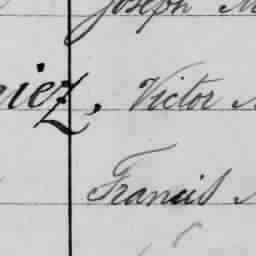 Joseph M
iez, Victor
Francis